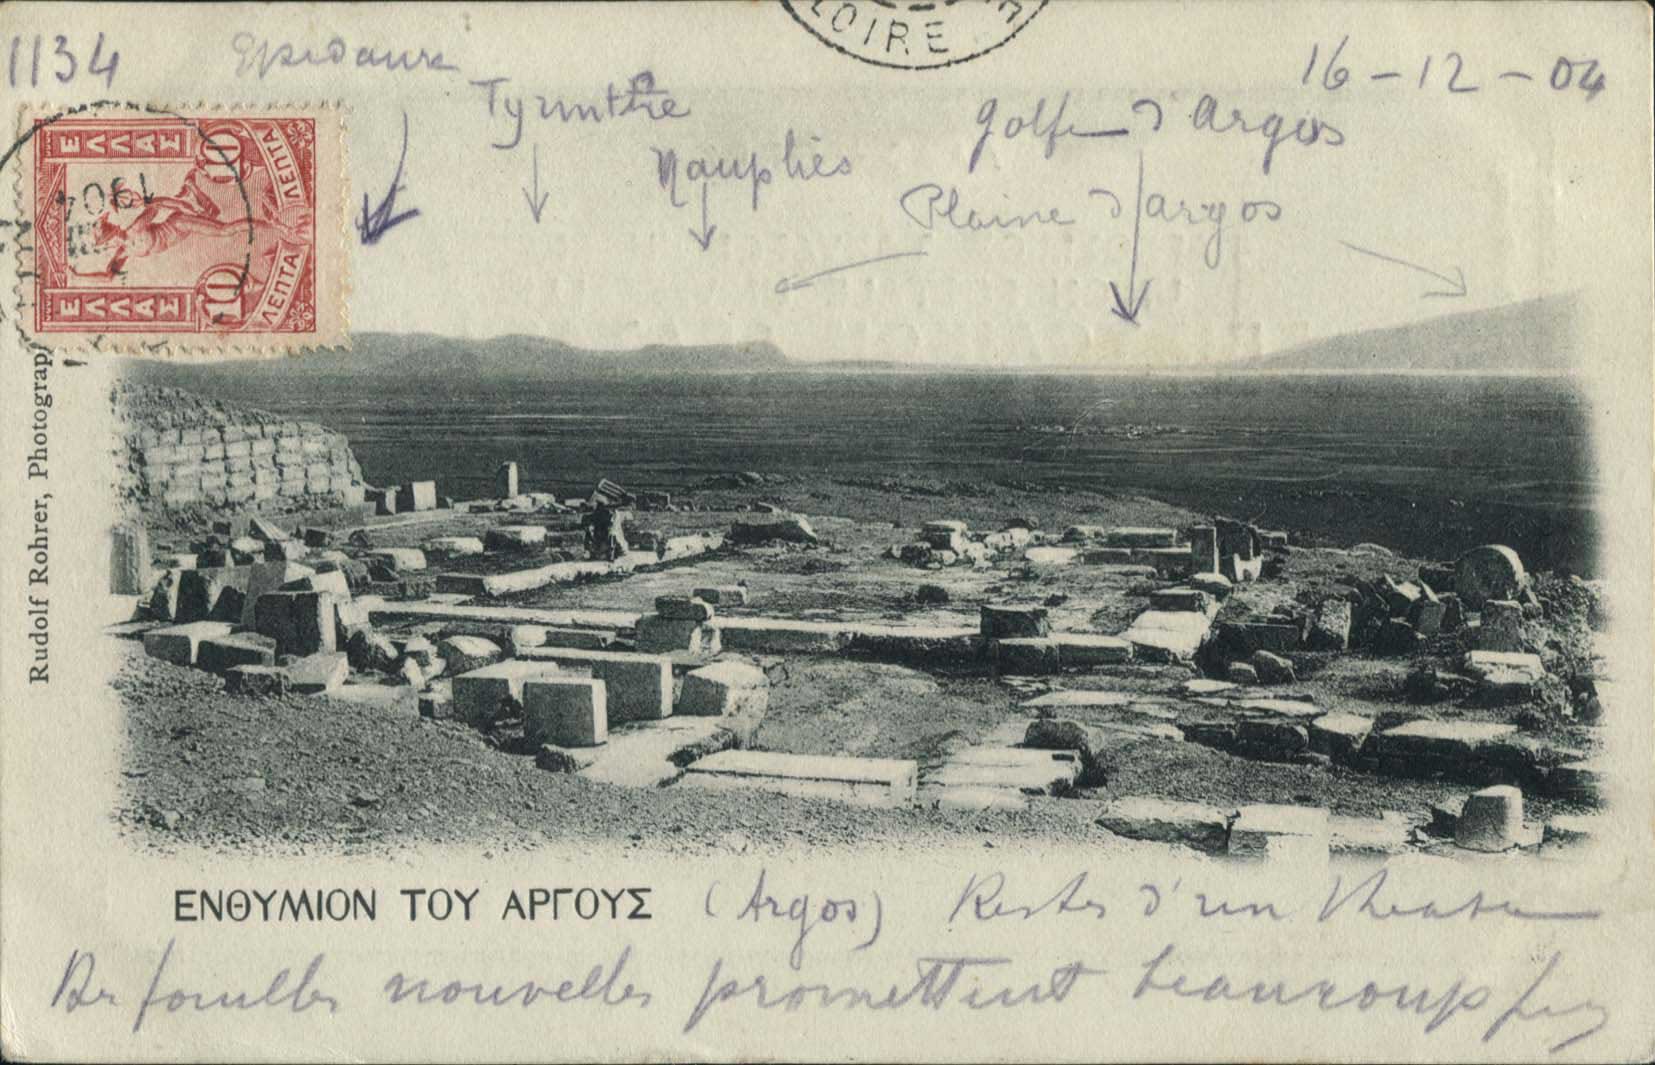 LOIRE
1134
Epidaure
16-12-04
Tyrinthe
Golfe d'Argos
Nauplies
Plaine d'argos
ΕΛΛΑΣ
10
ΛΕΠΤΑ
1904
10
ΛΕΠΤΑ
ΕΛΛΑΣ
Rudolf Rohrer, Photograp
ΕΝΘΥΜΙΟΝ ΤΟΥ ΑΡΓΟΥΣ (Argos) Restes d'un theatre
Des fouilles nouvelles promettent beaucoup